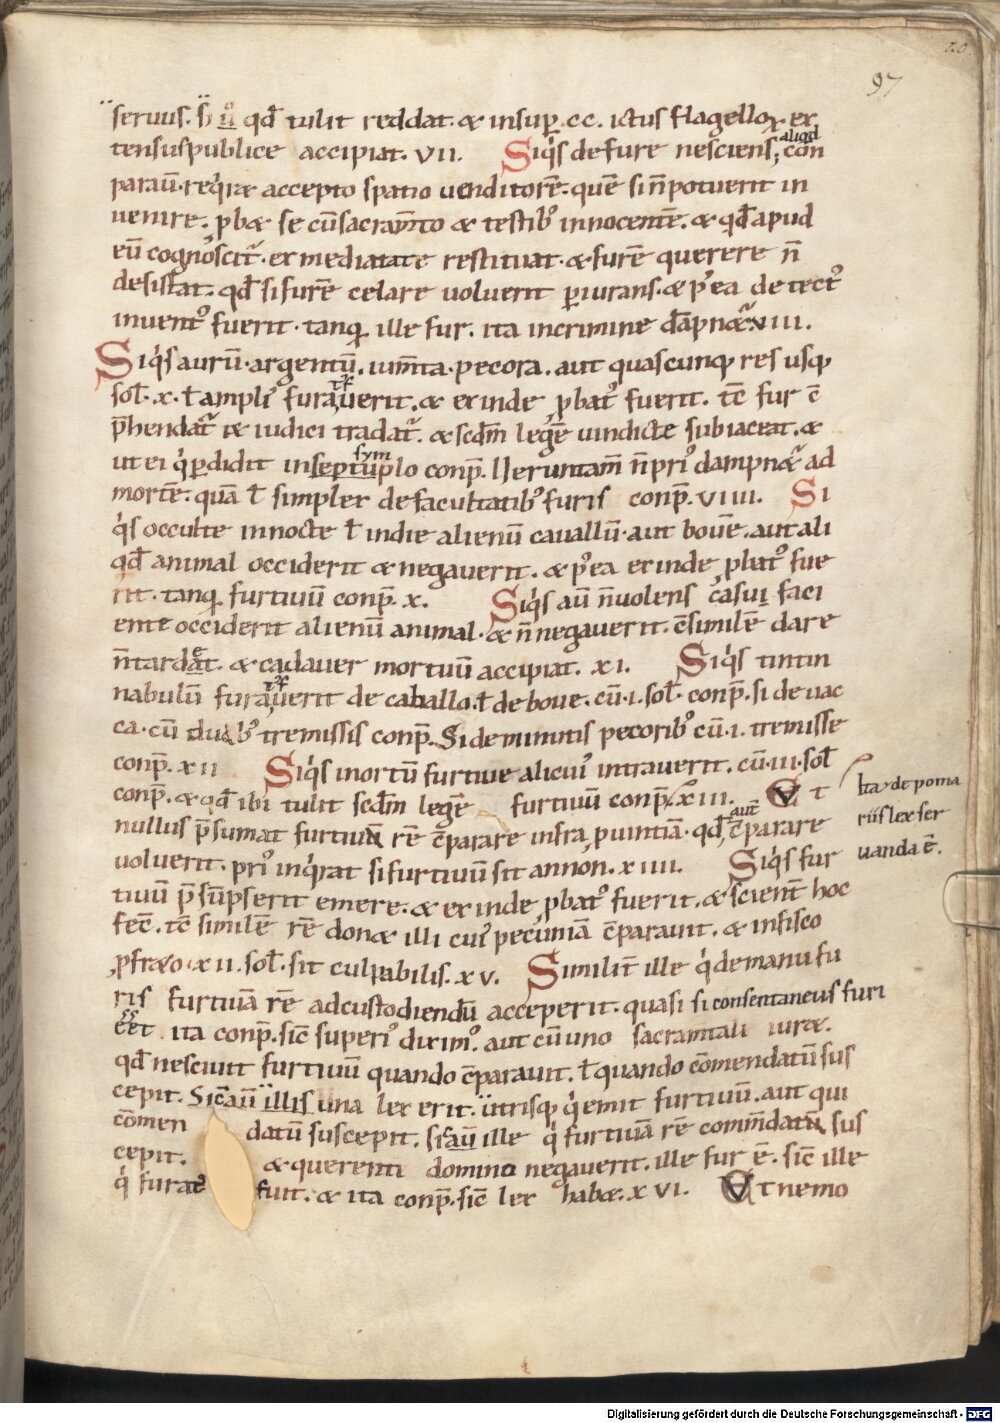 20
97
seruus. s̄ū qđ tulit reddat. & insup̱ .cc. ictus flagelloꝝ. ex
tensus publice accipiat. VII. Siqͥs de fure nesciens, aliqd con
parauͥ. reqͥrat accepto spatio uenditorē. quē si n̄ potuerit in
uenire. p̱b& se cū sacram̄to & testibꝰ innocentē. & qđ apud
eū cognoscit᷑. ex medietate restituat. & furē querere n̄
desistat. qđ si furē celare uoluerit p̱iurans. & pꝰea detectꝰ
inuentꝰ fuerit. tanq̱ ille fur. ita in crimine dāpn&᷑. VIII.
Siqͥs aurū. argentū. ium̄ta. pecora. aut quascunq; res usq;
sol̄. x. ł ampliꝰ furauerit. & exinde p̱batꝰ fuerit. tc̄ fur c̄
p̄hendat᷑ & iudici tradat᷑. & scdm̄ legē uindicte subiaceat. &
ut ei qͥ p̱didit in septuplo conp̄. Ueruntam̄ n̄ priꝰ dampn&᷑ ad
mortē. quā ł simpler de facultatibꝰ furis conp̄. VIIII. Si
qͥs occulte in nocte ł in die alienū cauallū. aut bouē. aut ali
qđ animal occiderit & negauerit. & pꝰea exinde p̱batꝰ fue
rit. tanq̱ furtiuū conp̄. X. Siqͥs aū n̄ uolens casu faci
ente occiderit alienū animal. & n̄ negauerit. c̄similē dare
n̄ tardet. & cadauer mortuū accipiat. XI. Siqͥs tintin
nabulū furauerit de caballo. ł de boue. cū. I. sol̄. conp̄. si de uac
ca. cū duabꝰ tremissis conp̄. Si de minutis pecoribꝰ cū. I. tremisse
conp̄. XII Siqͥs in ortū furtiue alicuiꝰ intrauerit. cū. III. sol̄
conp̄. & qđ ibi tulit scdm̄ legē furtiuū conp̄. XIII. Et
Ita de poma
riis lex ser
uanda ē.
nullus p̄sumat furtiuā rē c̄parare infra p̱uintiā. qđ, aut̄ c̄parare
uoluerit. priꝰ inqͥrat si furtiuū sit annon. XIIII. Siqͥs fur
tiuū p̄sūpserit emere. & exinde p̱batꝰ fuerit. & scient̄ hoc
fec̄. tc̄ similē rē don& illi cuiꝰ pecuniā c̄parauit. & in fisco
p̱ fr&o. XII. sol̄. sit culpabilis. XV. Similit̄ ille qͥ de manu fu
ris furtiuā rē ad custodiendū acceperit. quasi si consentaneus furi
eēt ita conp̄. sic̄ superiꝰ diximꝰ. aut cū uno sacramtali iur&.
qđ nesciuit furtiuū quando c̄parauit. ł quando c̄mendatū sus
cepit. Sic̄ aū illis una lex erit. utrisq; qͥ emit furtiuū. aut qui
c̄men datū suscepit. si aū ille qͥ furtiuā rē comm̄datā sus
cepit. & querenti domino negauerit. ille fur ē. sic̄ ille
qͥ furatꝰ fuit. & ita conp̄. sic̄ lex hab&. XVI. Et nemo
Digitalisierung gefördert durch die Deutsche Forschungsgemeinschaft - DFG